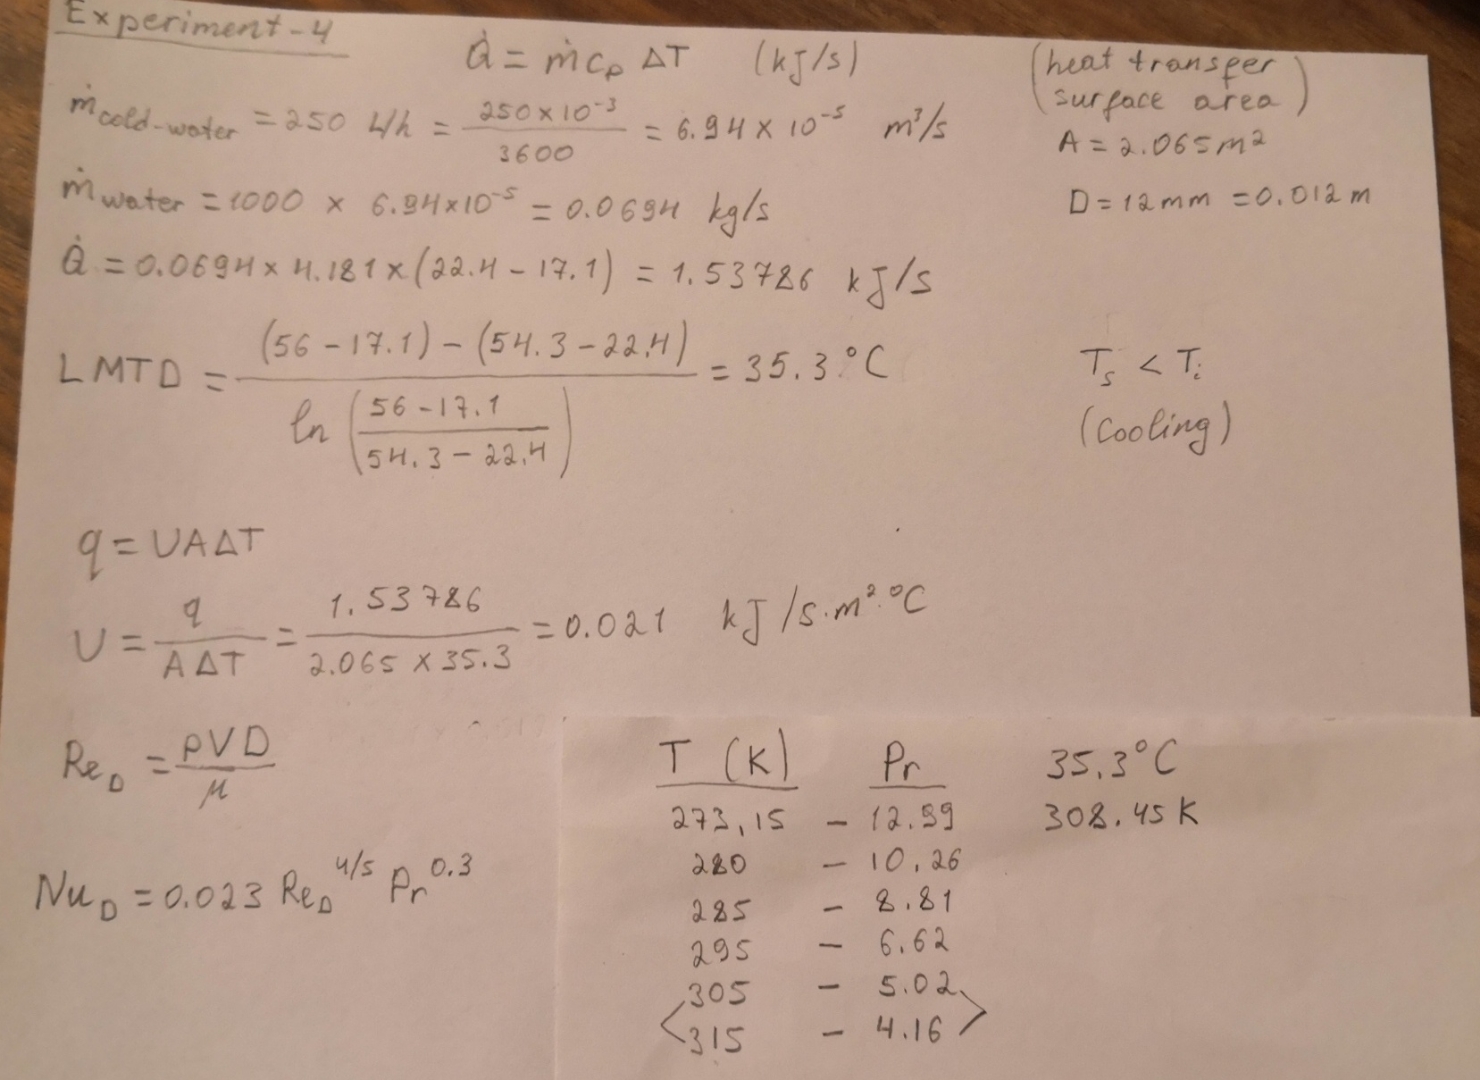 Experiment-4
Q̇ = ṁcₚ ΔT (kJ/s)
(heat transfer surface area)
ṁcold-water = 250 L/h = 250×10⁻³ / 3600 = 6.94 × 10⁻⁵ m³/s
A = 2.065m²
ṁwater = 1000 × 6.94×10⁻⁵ = 0.0694 kg/s
D = 12mm = 0.012 m
Q̇ = 0.0694 × 4.181 × (22.4 - 17.1) = 1.53786 kJ/s
LMTD = (56 - 17.1) - (54.3 - 22.4) / ln (56 - 17.1 / 54.3 - 22.4) = 35.3 °C
Ts < Ti
(Cooling)
q = UAΔT
U = q / AΔT = 1.53786 / 2.065 × 35.3 = 0.021 kJ/s.m².°C
Re_D = ρVD / μ
Nu_D = 0.023 Re_D^4/5 Pr^0.3
T (K) Pr 35.3°C
273,15 - 12.99 308.45K
280 - 10.26
285 - 8.81
295 - 6.62
305 - 5.02
315 - 4.16